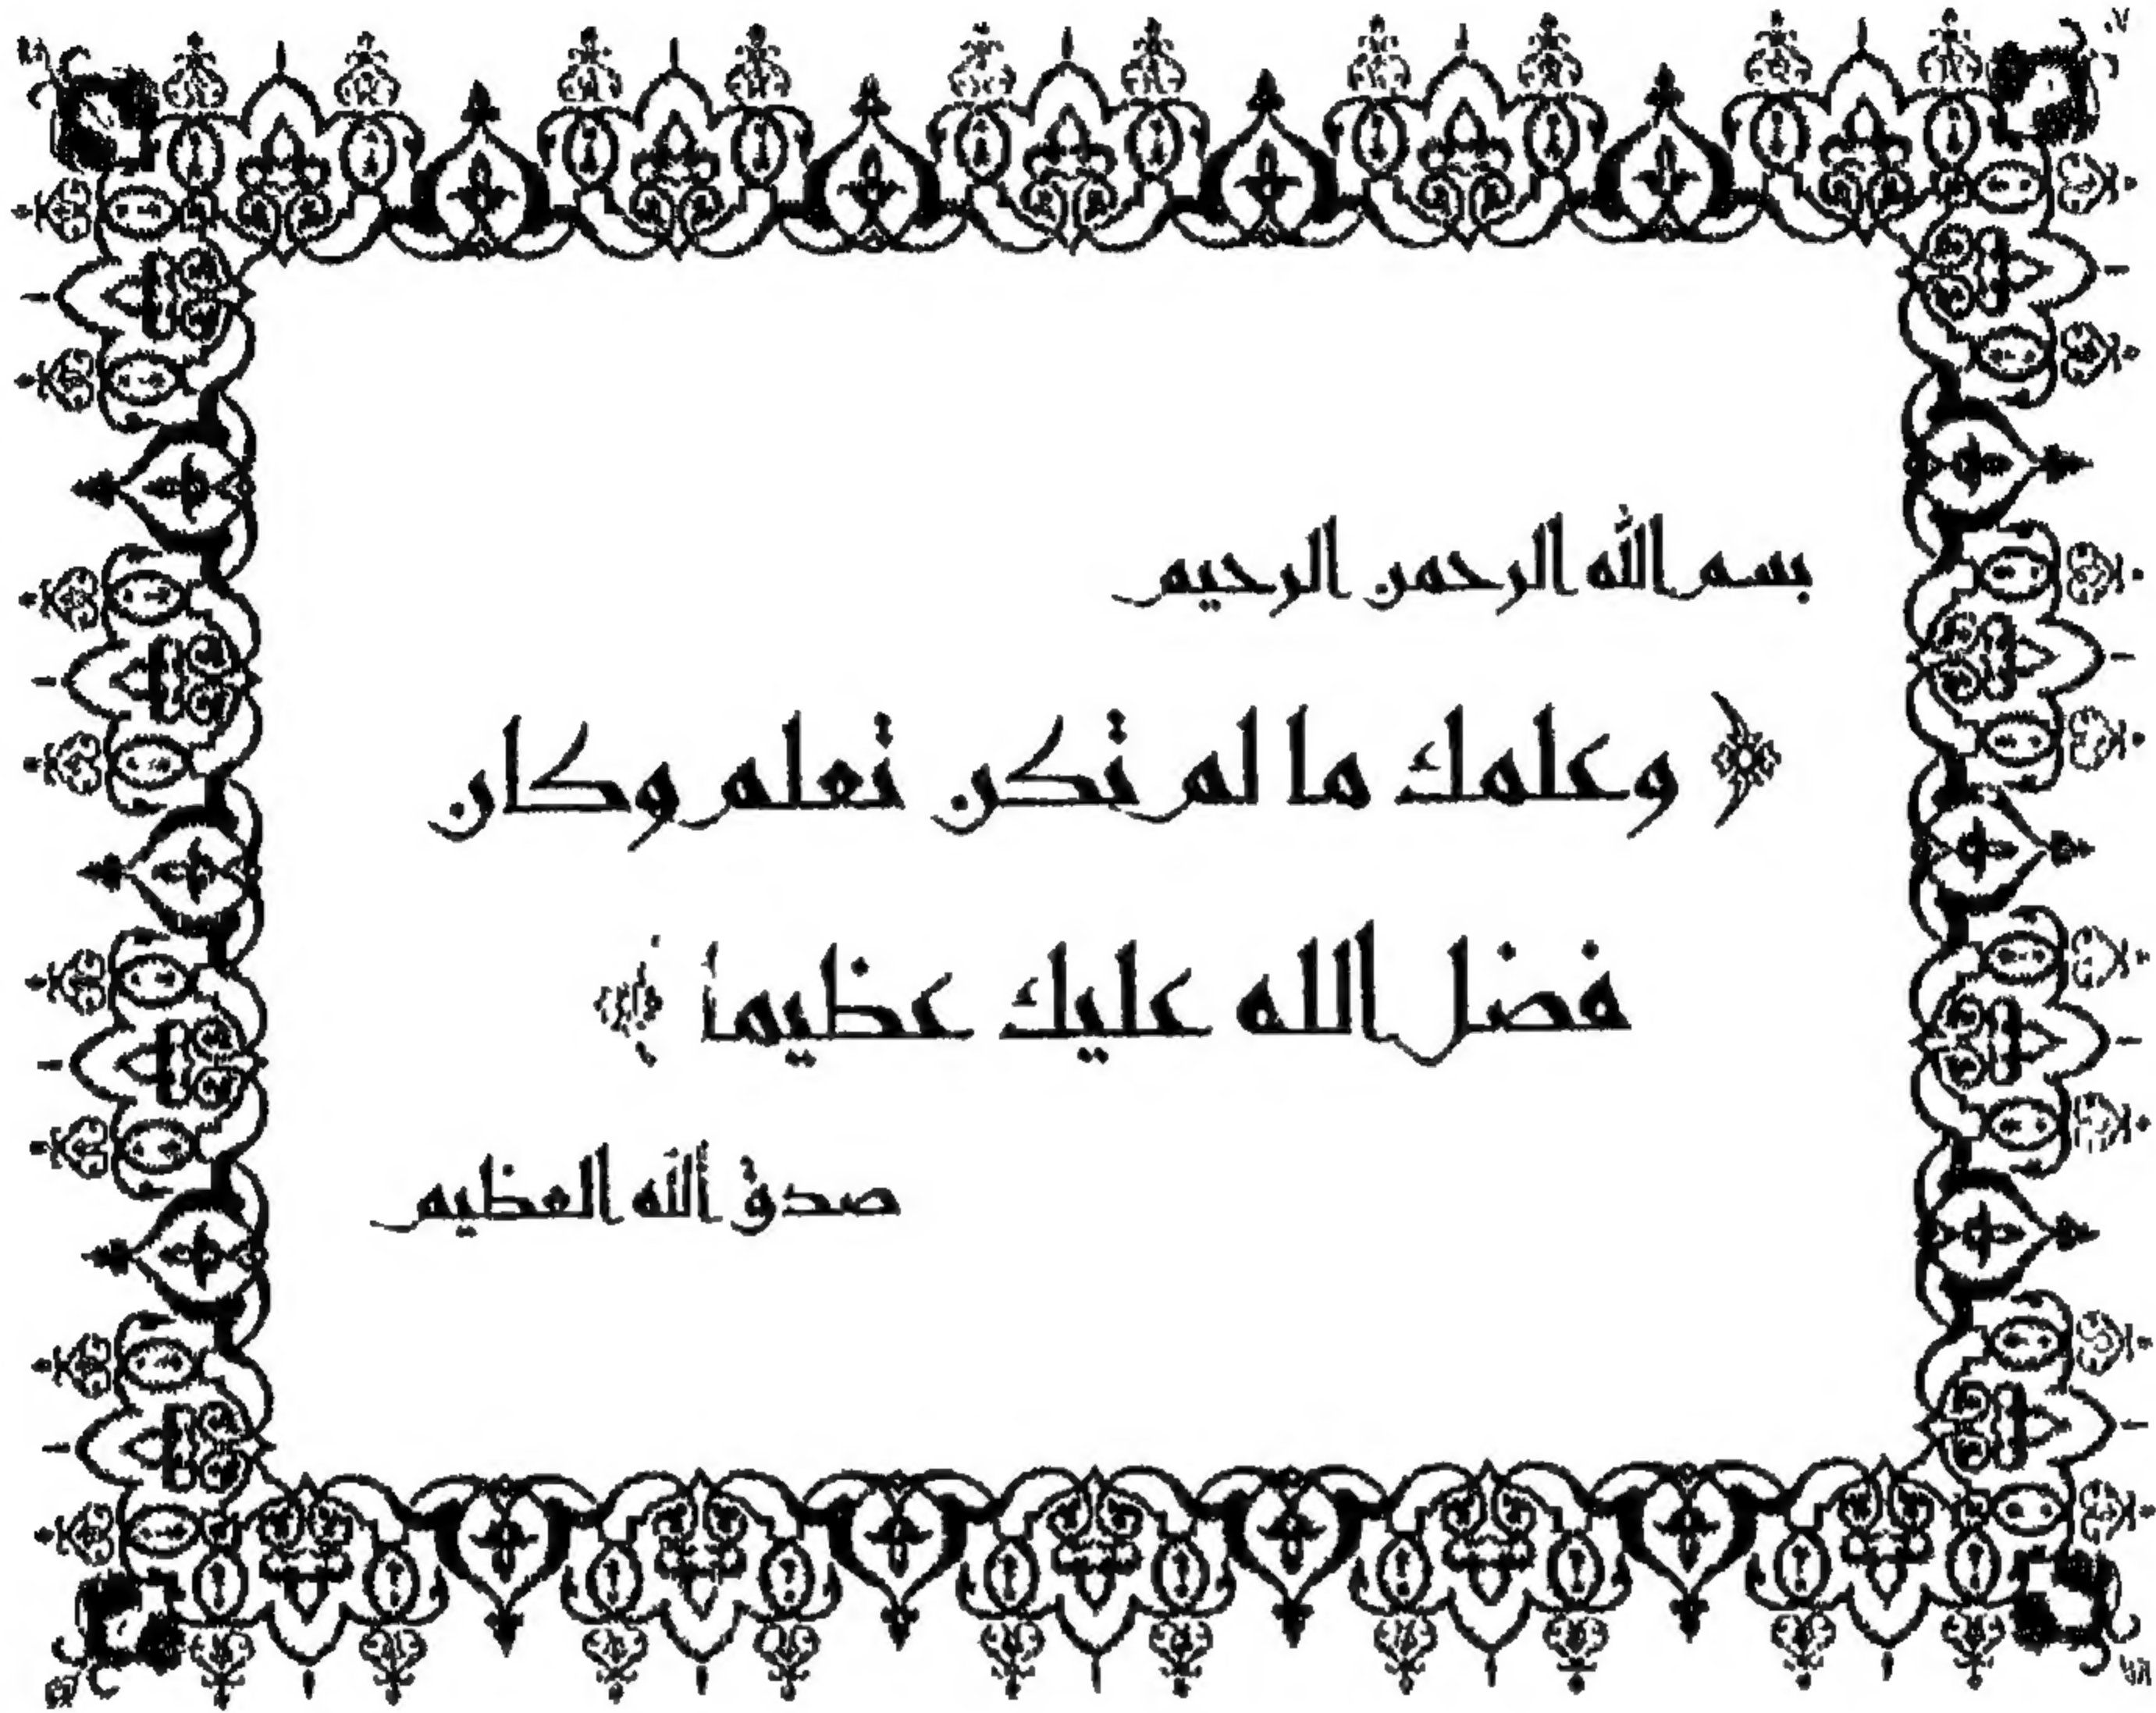 بسم الله الرحمن الرحيم
﴿ وعلمك ما لم تكن تعلم وكان
فضل الله عليك عظيماً ﴾
صدق الله العظيم